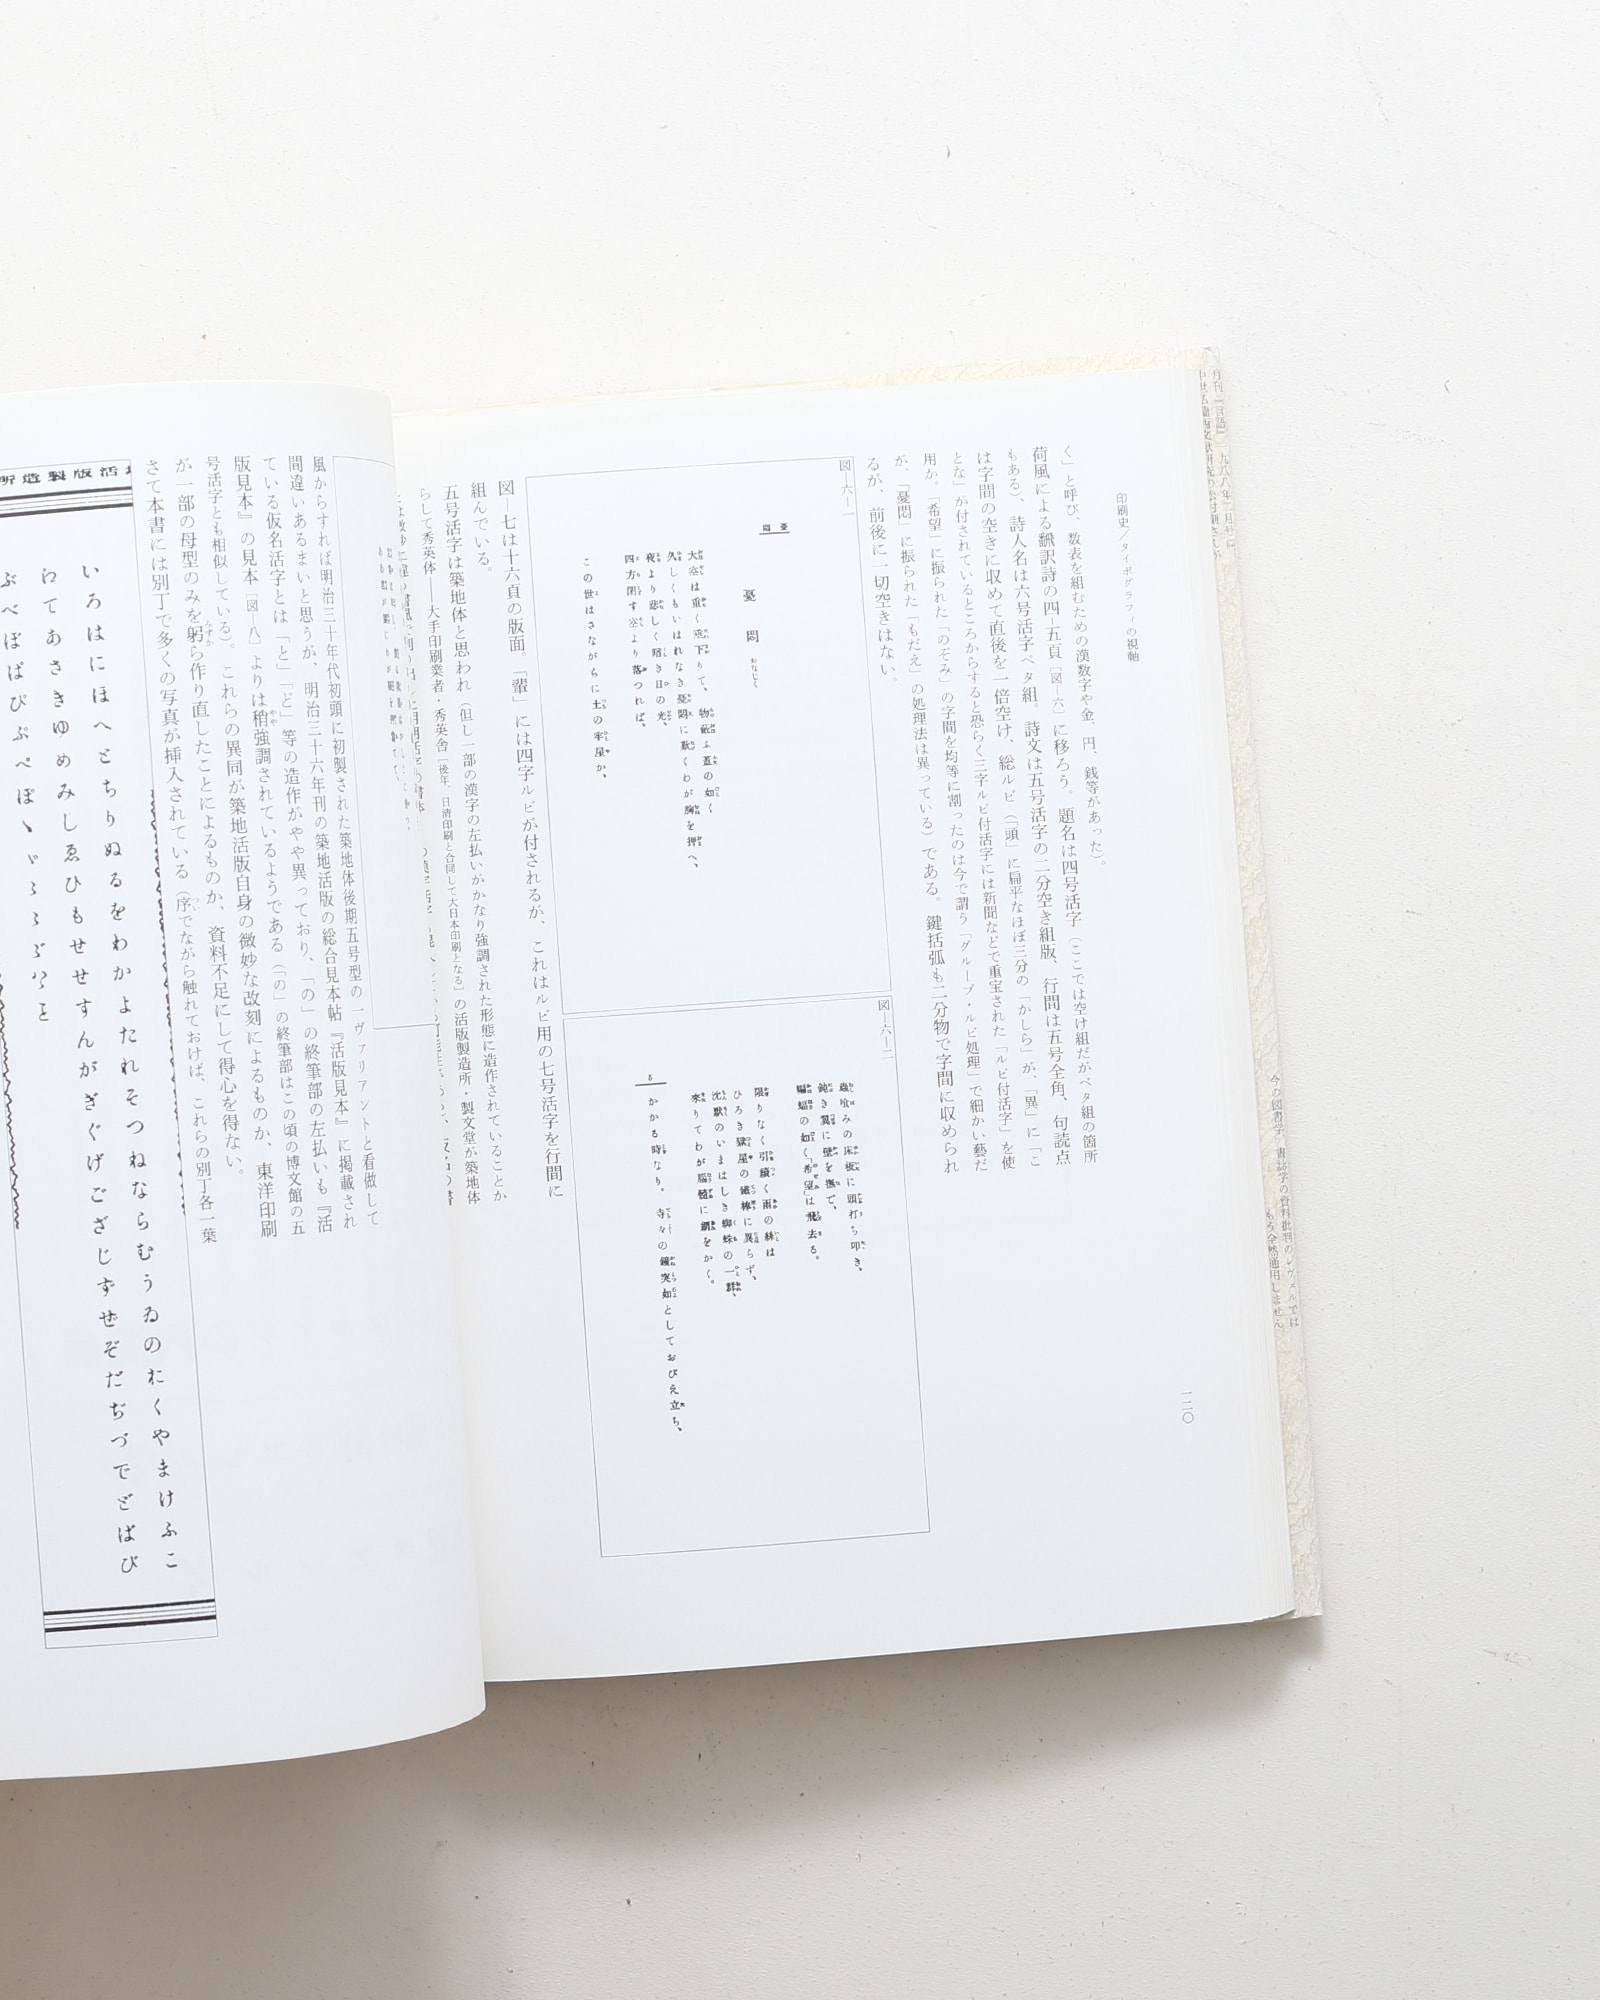 印刷史／タイポグラフィの視軸
く」と呼び、数表を組むための漢数字や金、円、銭等があった）。
荷風による翻訳詩の四−五頁［図−六］に移ろう。題名は四号活字（ここでは空け組だがベタ組の箇所
もある）、詩人名は六号活字ベタ組。詩文は五号活字の二分空き組版、行間は五号全角、句読点
は字間の空きに収めて直後を一倍空け、総ルビ（「頭」に扁平なほぼ三分の「かしら」が、「異」に「こ
とな」が付されているところからすると恐らく三字ルビ付活字には新聞などで重宝された「ルビ付活字」を使
用か。「希望」に振られた「のぞみ」の字間を均等に割ったのは今で謂う「グループ・ルビ処理」で細かい藝だ
が、「憂悶」に振られた「もだえ」の処理法は異っている）である。鍵括弧も二分物で字間に収められ
るが、前後に一切空きはない。
図−六−一
憂悶
憂　悶　おなじく
大空は重く垂下りて、物蔽ふ蓋の如く
久しくもいはれなき憂悶に歎くわが胸を押へ、
夜より悲しく暗き日の光、
四方閉す空より落つれば、
この世はさながらに土の牢屋か、
図−六−二
蟲喰みの床板に頭打ち叩き、
鈍き翼に壁を撫で、
蝙蝠の如く「希望」は飛去る。
限りなく引續く雨の絲は
ひろき獄屋の鐵棒に異らず、
沈默のいまはしき蜘蛛の一群、
來りてわが腦髓に網をかく。
かかる時なり。寺々の鐘突如としておびえ立ち、
5
図−七は十六頁の版面。「輩」には四字ルビが付されるが、これはルビ用の七号活字を行間に
組んでいる。
五号活字は築地体と思われ（但し一部の漢字の左払いがかなり強調された形態に造作されていることか
らして秀英体——大手印刷業者・秀英舎［後年、日清印刷と合同して大日本印刷となる］の活版製造所・製文堂が築地体
一二〇
風からすれば明治三十年代初頭に初製された築地体後期五号型の一ヴァリアントと看做して
間違いあるまいと思うが、明治三十六年刊の築地活版の総合見本帖『活版見本』に掲載され
ている仮名活字とは「と」「ど」等の造作がやや異っており、「の」の終筆部の左払いも『活
版見本』の見本［図−八］よりは稍強調されているようである（「の」の終筆部はこの頃の博文館の五
号活字とも相似している）。これらの異同が築地活版自身の微妙な改刻によるものか、東洋印刷
が一部の母型のみを躬ら作り直したことによるものか、資料不足にして得心を得ない。
さて本書には別丁で多くの写真が挿入されている（序でながら触れておけば、これらの別丁各一葉
活版製造所
いろはにほへとちりぬるをわかよたれそつねならむうゐのおくやまけふこ
えてあさきゆめみしゑひもせせすんがぎぐげござじずぜぞだぢづでどばび
ぶべぼぱぴぷぺぽ
今の図書学・書誌学の資料批判のレヴェルでは
もう全然通用しません